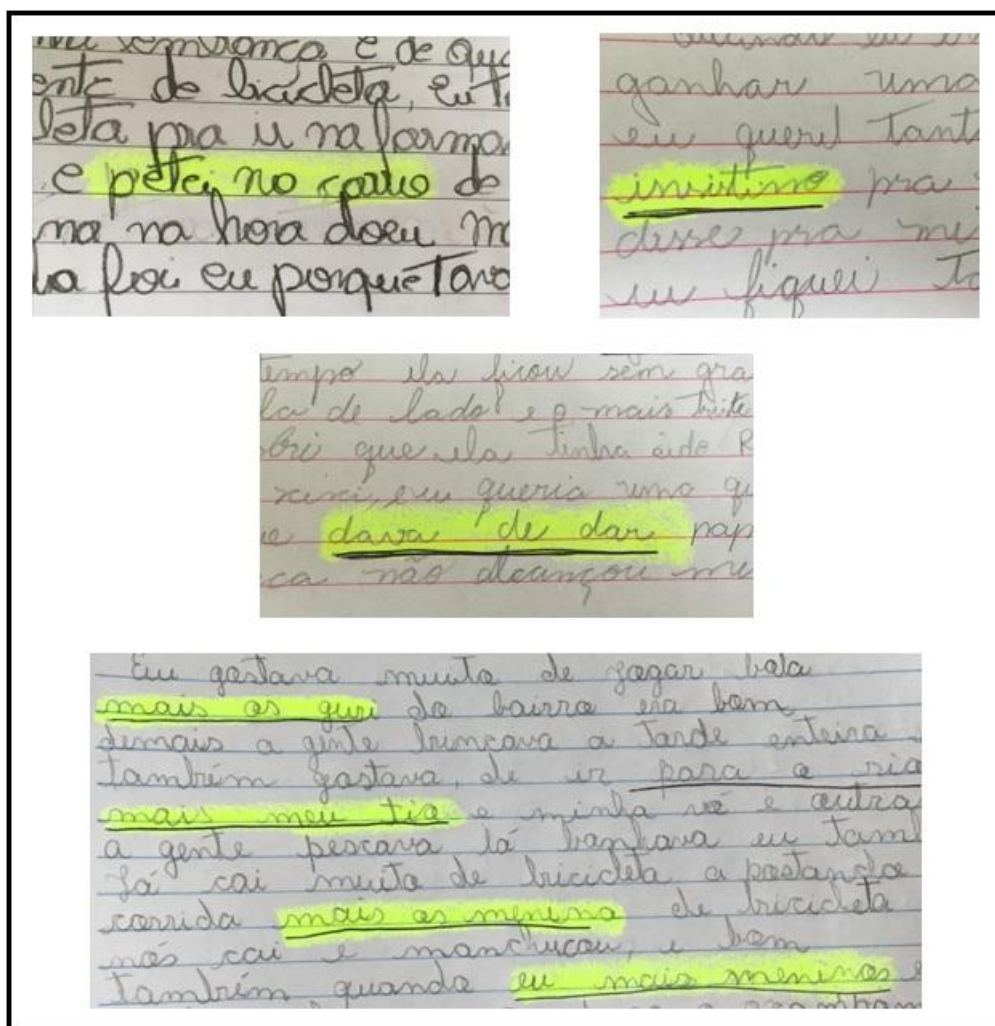 e de
de bicicleta, eu
leta pra ir na
e petei no carro do
ma na hora doeu
foi eu porque tava
ganhar uma
eu queril tant
pra
disse pra mi
eu fiquei
tempo ela ficou sem gra
la de lado e o mais
bri que ela tinha sido R
xixi, eu queria uma
e dava de dar pap
ca não alcançou
Eu gostava muito de jogar bola
mais os guri do bairro era bom
demais a gente brincava a tarde enteira
também gostava, de ir para o rio
mais meu tio e minha vó e outra
a gente pescava lá banhava eu tam
Já cai muito de bricicleta a postando
corrida mais os menino de bricicleta
nós cai e manchucou, e bom
também quando eu mais meninos e